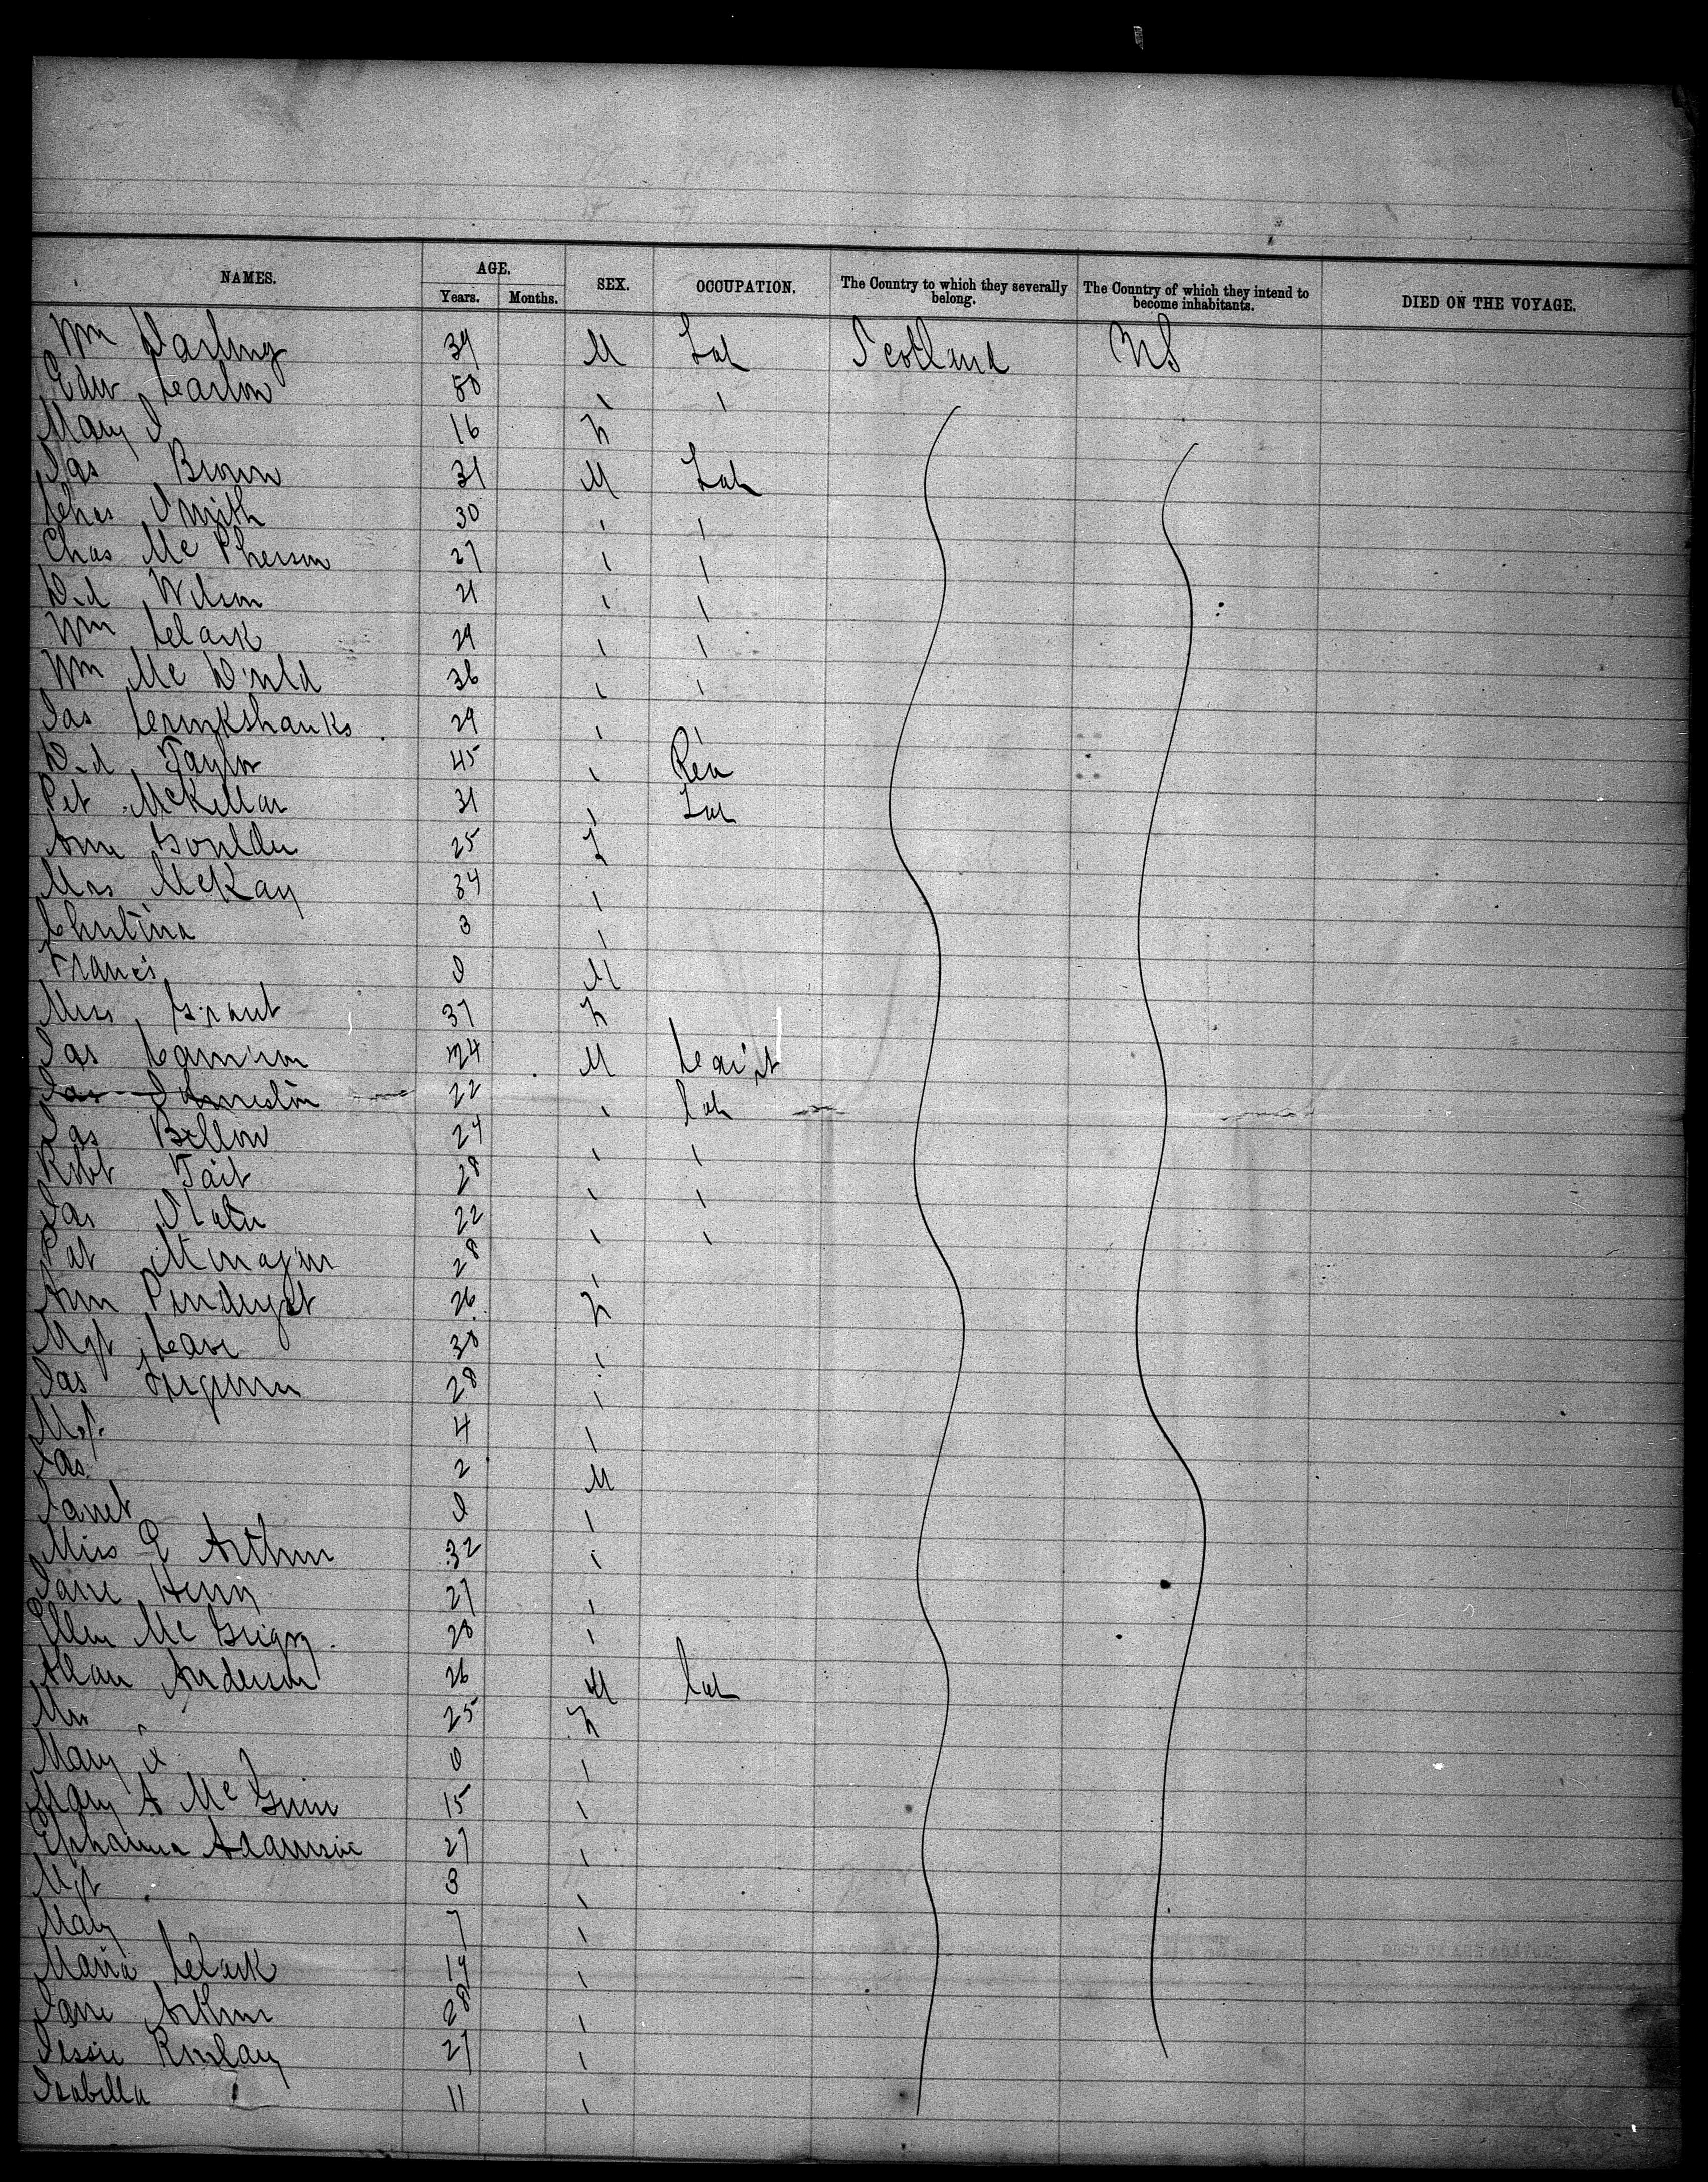 NAMES. AGE. SEX. OCCUPATION. The Country to which they severally belong. The Country of which they intend to become inhabitants. DIED ON THE VOYAGE.
Years. Months.
Wm Darling 34 M Lab Scotland US
Edw Carlin 50 " "
Mary J 16 F
Jas Brown 31 M Lab
Chas Smith 30 " "
Chas McPherson 27 " "
Dd Wilson 21 " "
Wm Clark 29 " "
Wm McDnld 36 " "
Jas Cruikshanks 29 " "
Dd Taylor 45 "
Pet McKellar 31 " Lab
Ann Goulder 25 F
Mrs McKay 34 "
Christina 3 "
Francis 0 M
Miss Grant 37 F
Jas Cameron 24 M
Jas Johnneston 22 " Lab
Jas Bellow 24 " "
Robt Tait 28 " "
Jas Slater 22 " "
Pat 28 "
Ann Pendergst 26 F
Mgt 30 "
Jas Ferguson 28 "
Mgt 4 "
Jas 2 M
Janet 0 "
Miss E Arthur 32 "
Jane Henry 27 "
Ellen McGrigor 20 "
Allan Anderson 26 M Lab
Mrs " 25 F
Mary 0 "
Mary A McGuin 15 "
Ephaima Adamson 27 "
Mgt 3 "
Mary 7 "
Maria Clark 14 "
Jane Arthur 28 "
Jessie 27 "
Isabella " 11 "